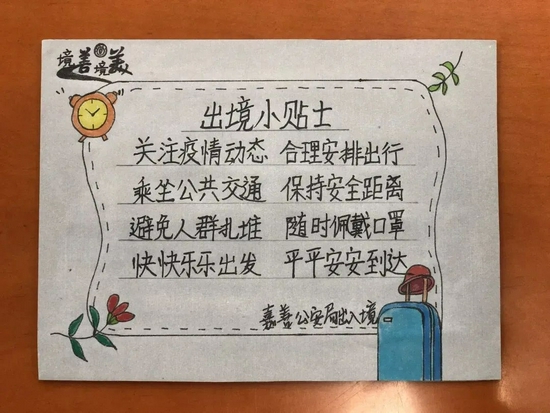 境善境美
出境小贴士
关注疫情动态 合理安排出行
乘坐公共交通 保持安全距离
避免人群扎堆 随时佩戴口罩
快快乐乐出发 平平安安到达
嘉善公安局出入境